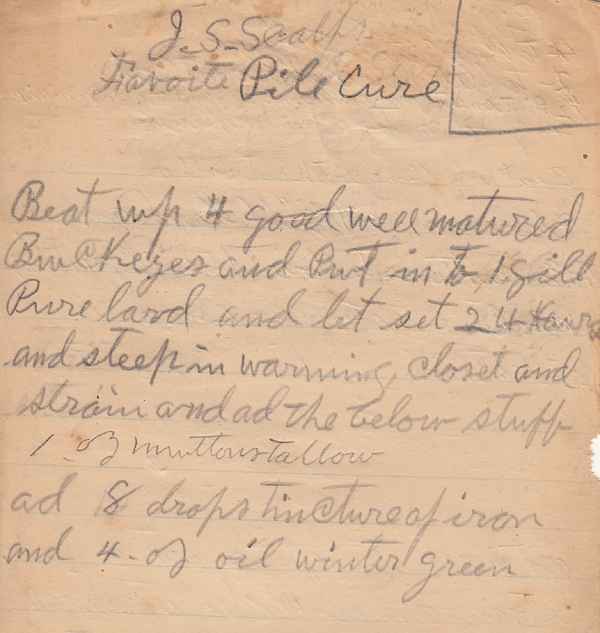 J. S. Scalf
Favoite Pile Cure
Beat up 4 good well matured
Buckeyes and Put in to 1 gill
Pure lard and let set 24 Hours
and steep in warming closet and
strain and ad the below stuff
1 oz muttons tallow
ad 18 drops tincture of iron
and 4 oz oil winter green